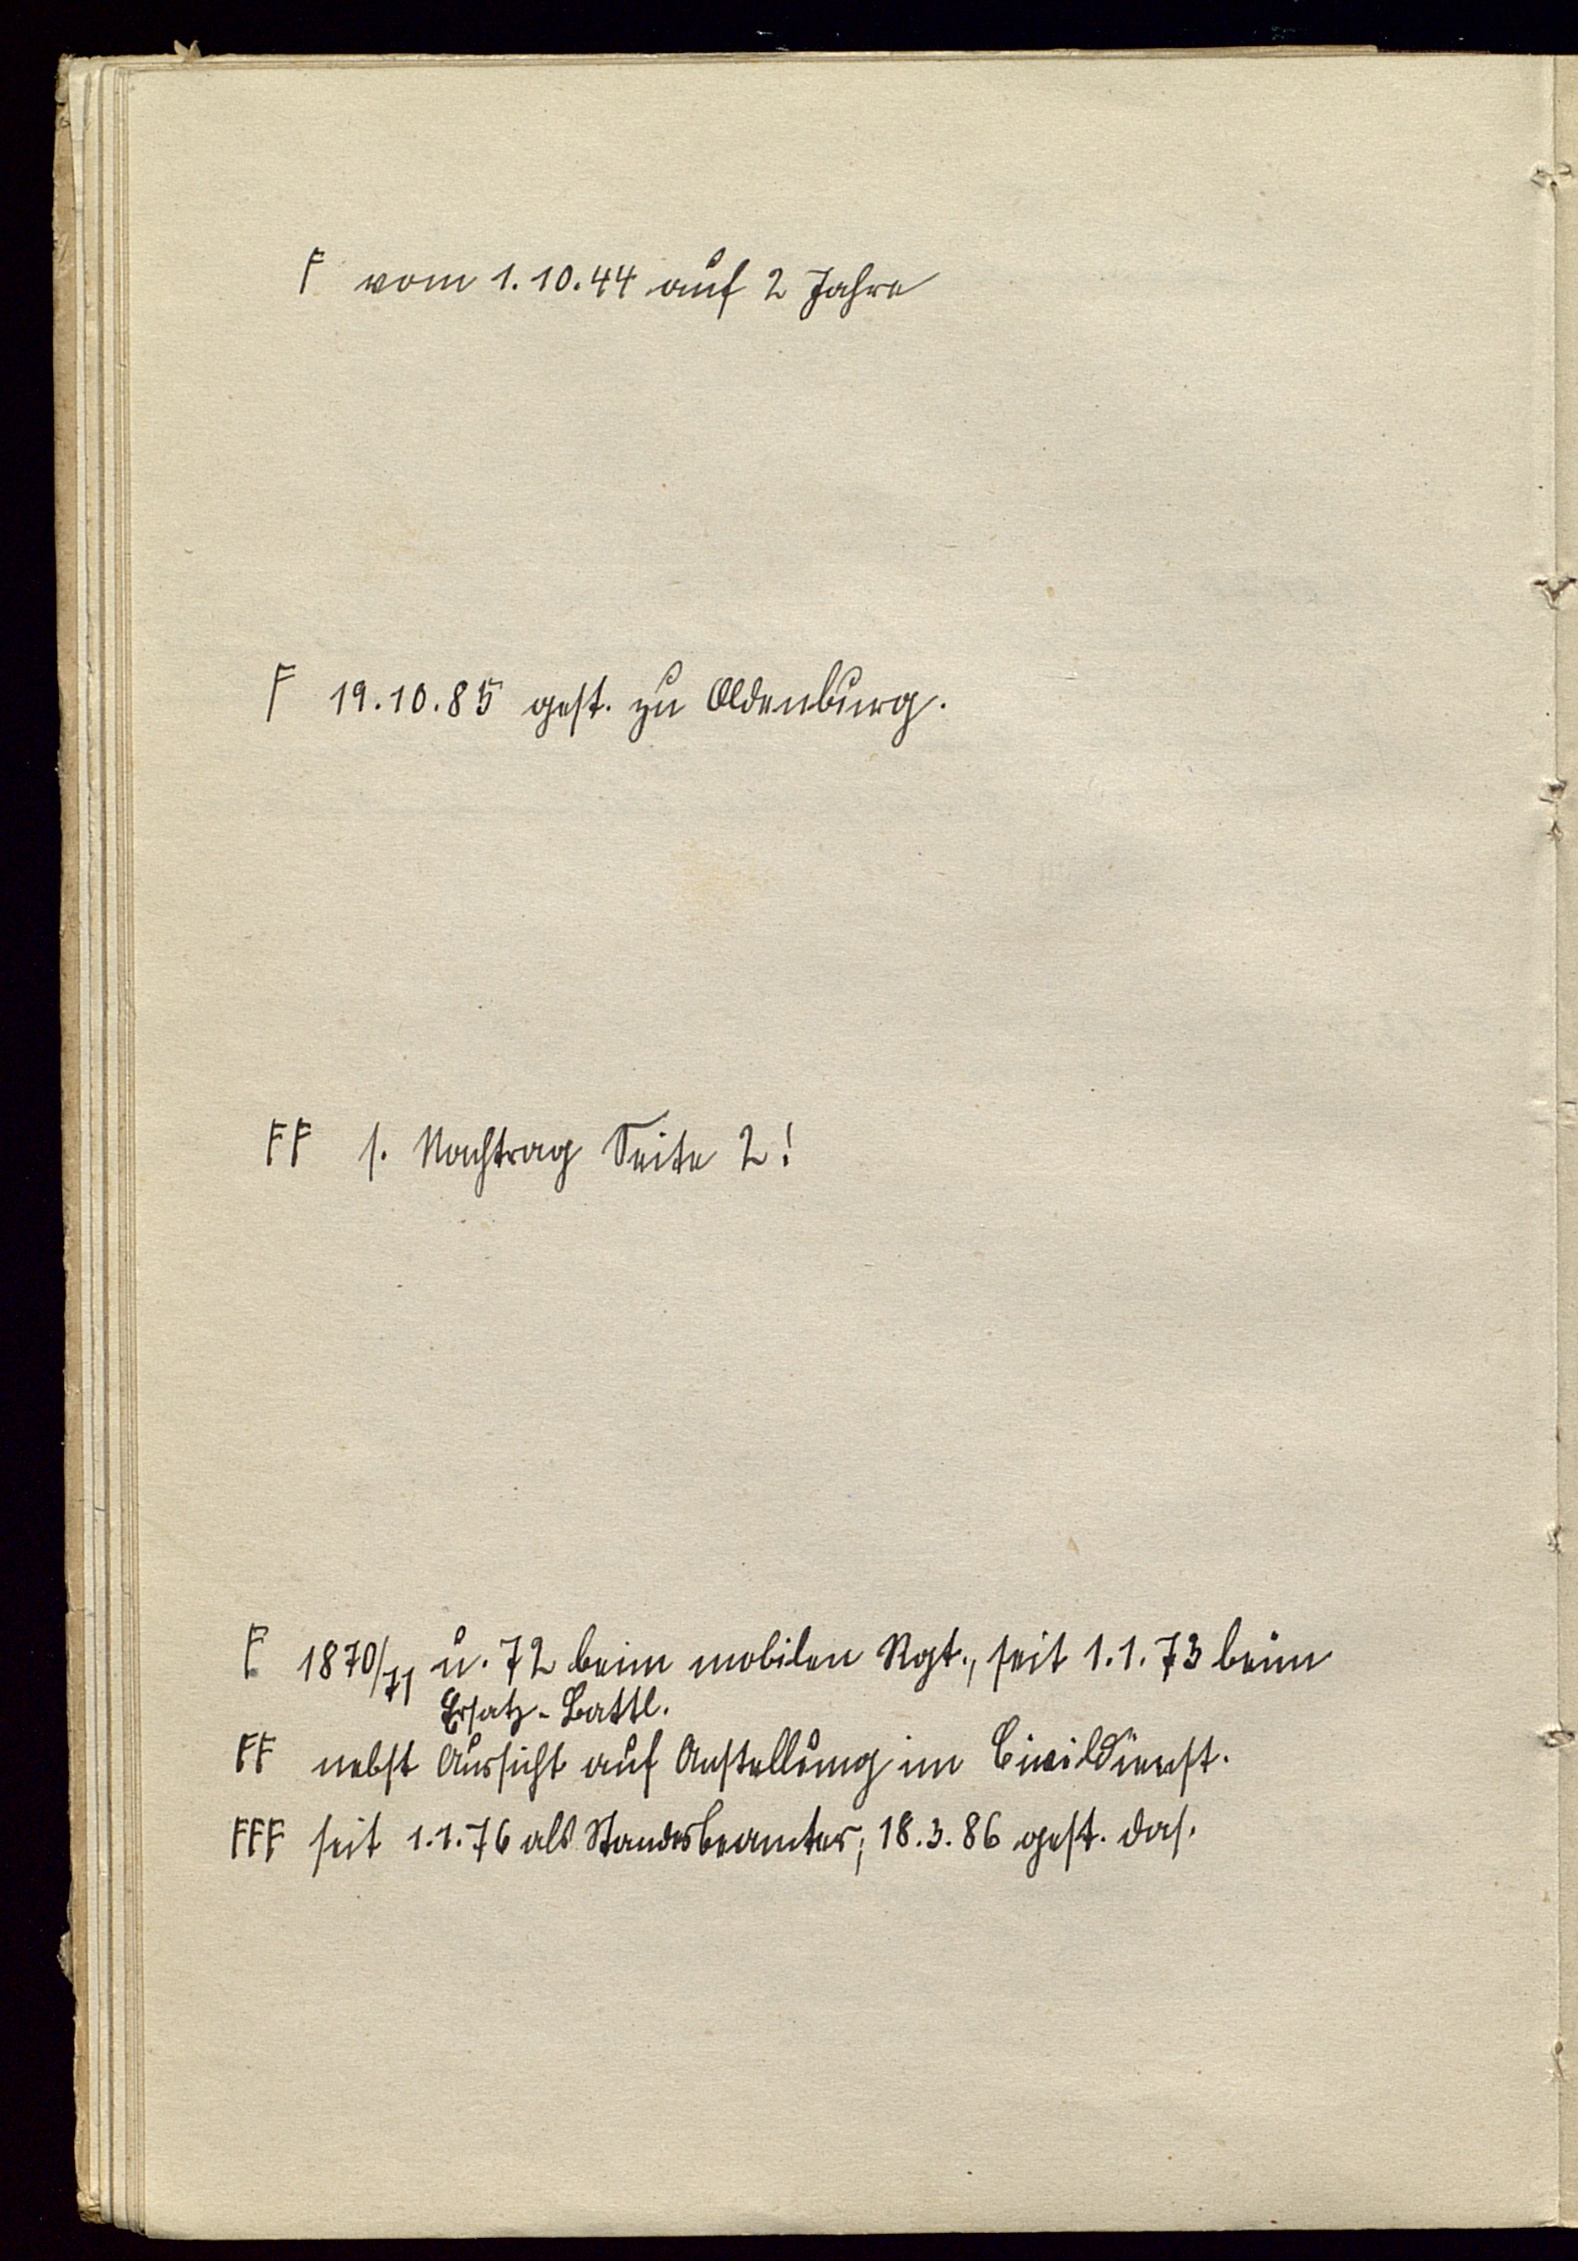 F vom 1.10.44 auf 2 Jahre
F 19.10.85 gest. zu Oldenburg.
FF s. Nachtrag Seite 2!
F 1870/71 u. 72 beim mobilen Rgt., seit 1.1.73 beim
Ersatz-Battl.
FF nebst Aussicht auf Anstellung im Civildienst.
FFF seit 1.1.76 als Standesbeamter; 18.3.86 gest. das.